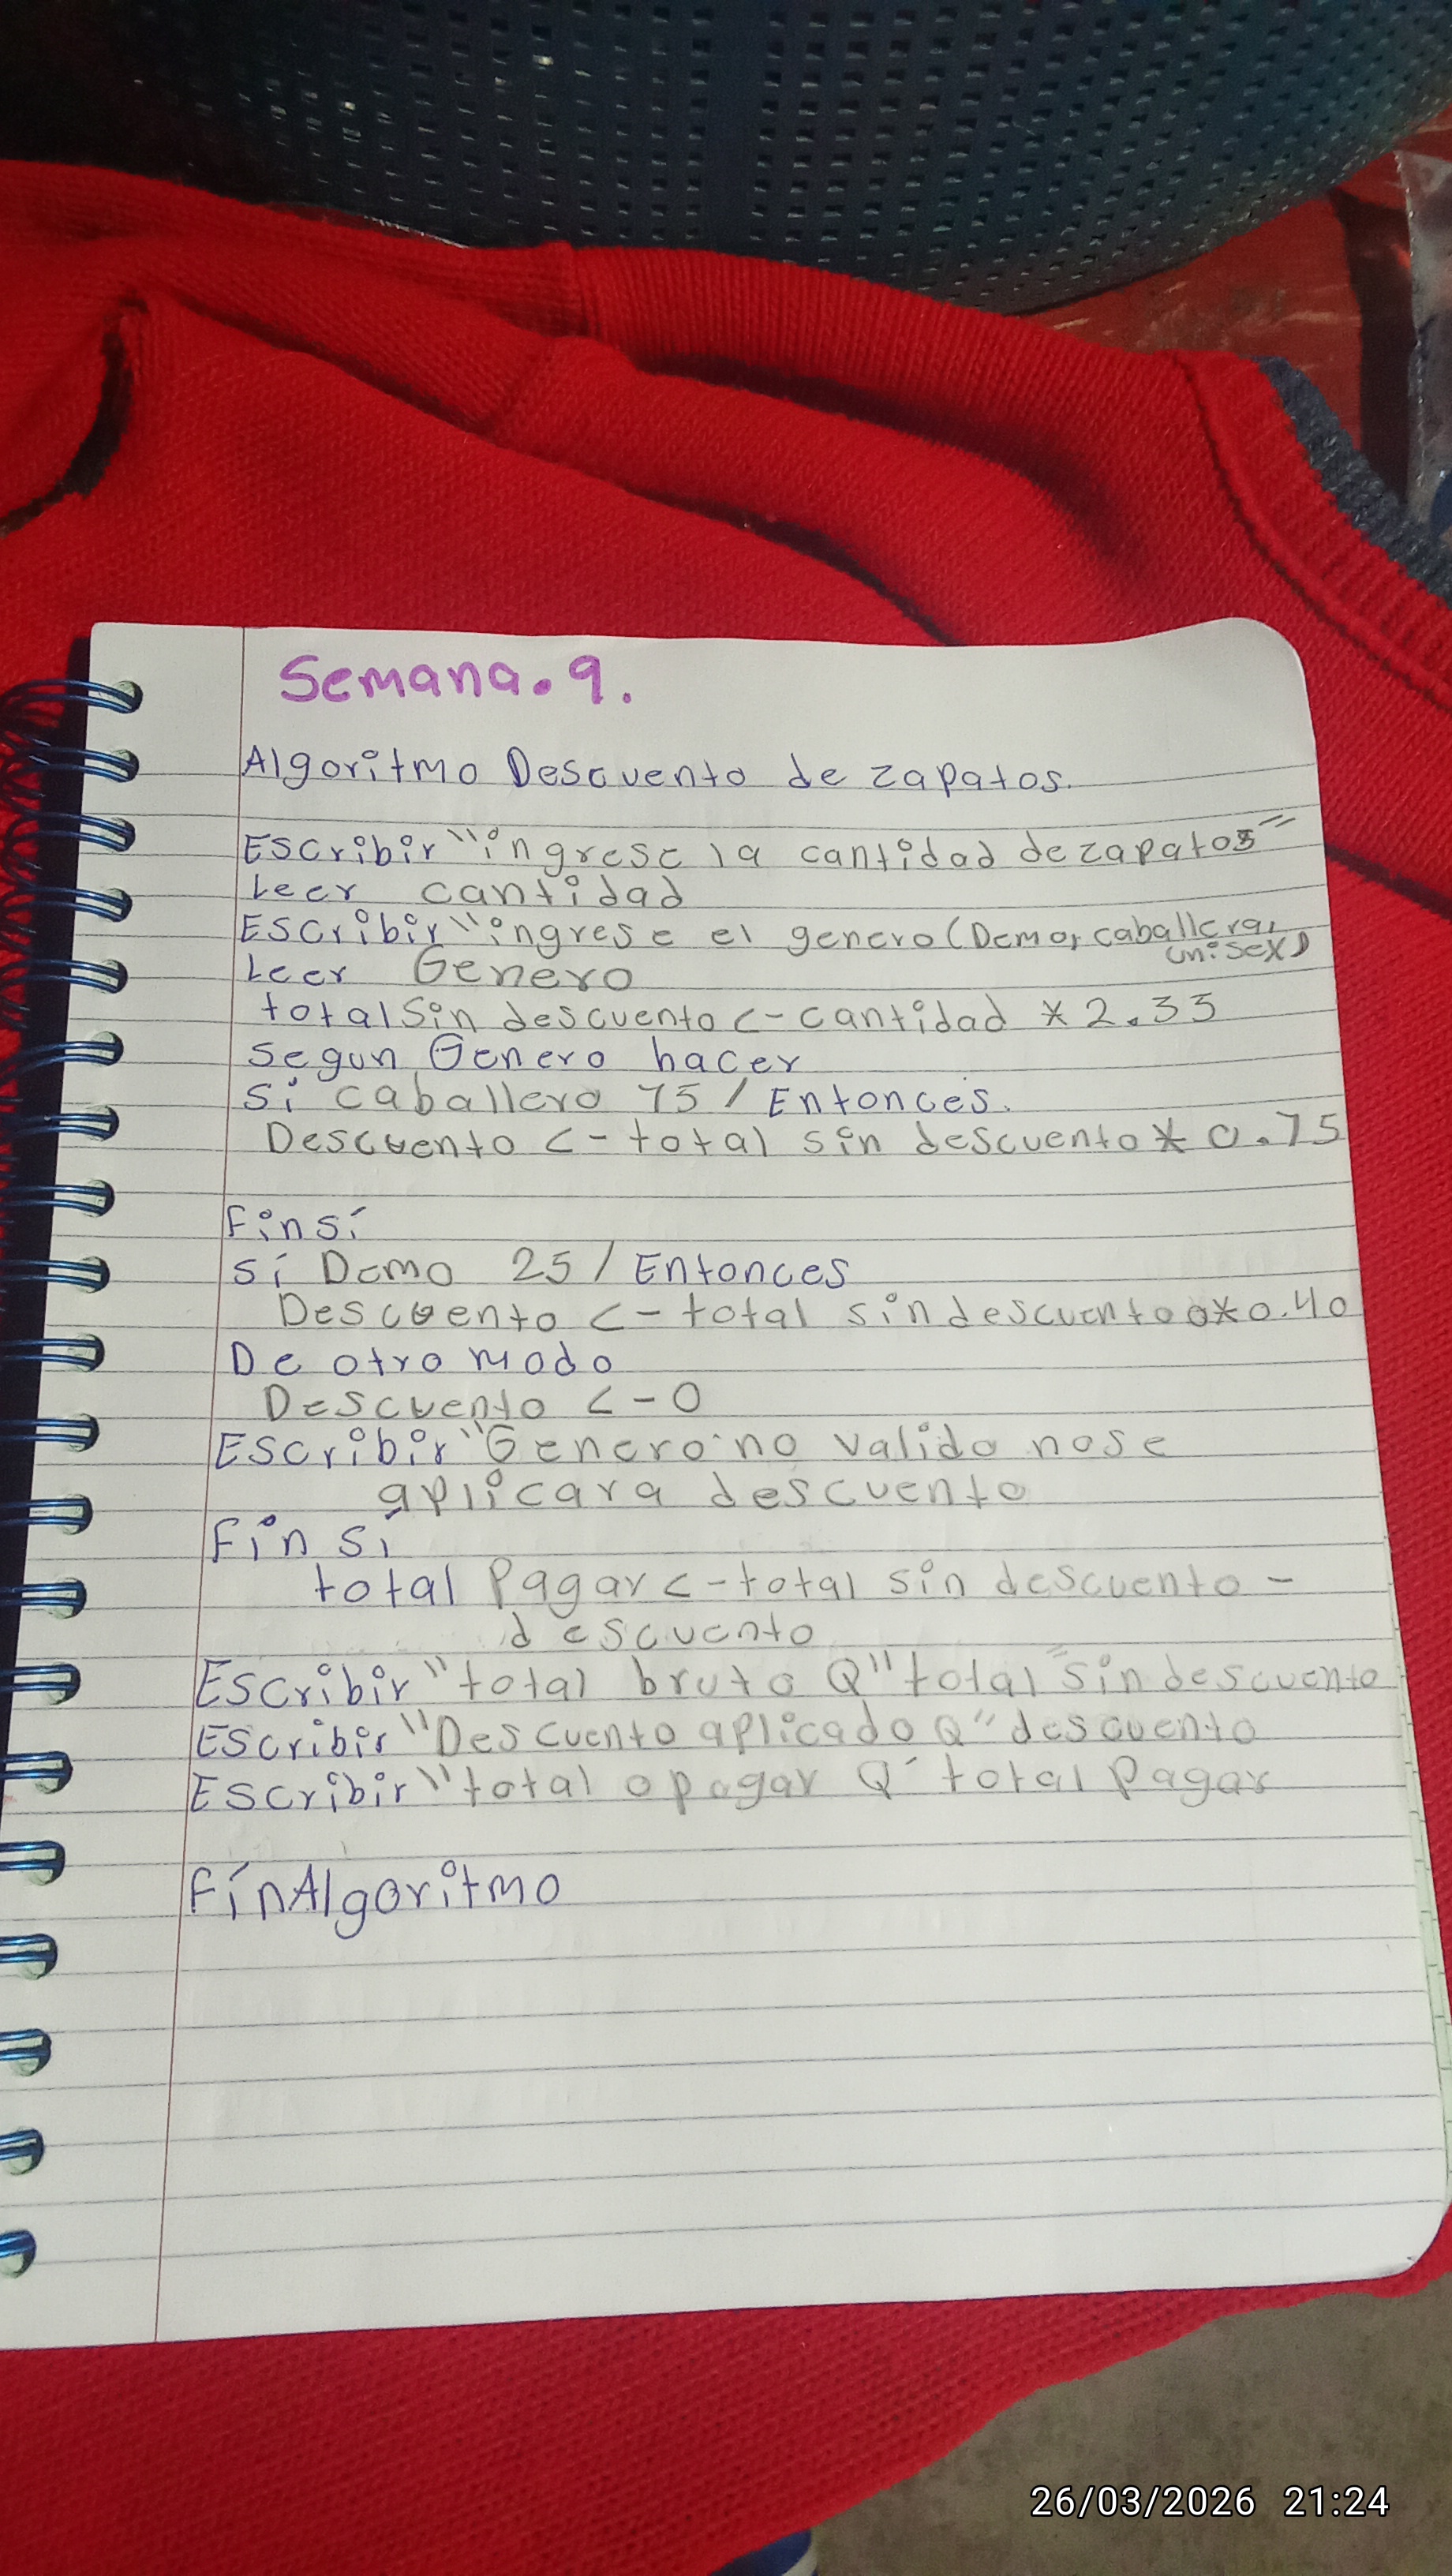 Semana. 9.
Algoritmo Descuento de zapatos.
Escribir "ingrese la cantidad de zapatos"
Leer cantidad
Escribir "ingrese el genero (Demo, caballera,
unisex)
Leer Genero
total Sin descuento <- cantidad * 2.33
segun Genero hacer
Si caballero 75 / Entonces.
Descuento <- total sin descuento * 0.75
Finsí
Sí Demo 25 / Entonces
Descuento <- total sin descuento o * 0.40
De otro modo
Descuento <- 0
Escribir "Genero no valido nose
aplicara descuento
Fin si
total Pagar <- total sin descuento -
descuento
Escribir "total bruto Q" total sin descuento
Escribir "Descuento aplicado Q" descuento
Escribir "total a pagar Q" total Pagar
FinAlgoritmo
26/03/2026 21:24